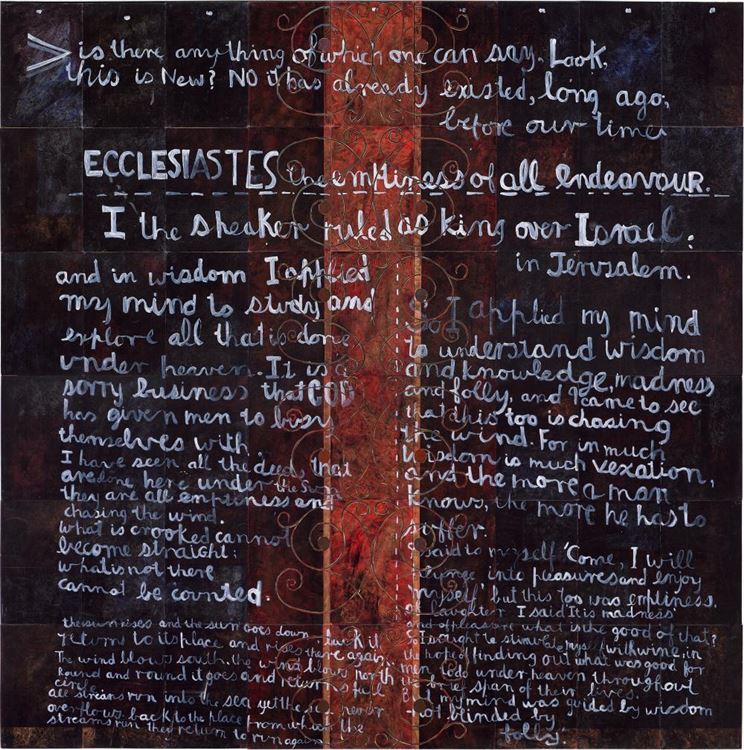 is there anything of which one can say, Look,
this is New? NO it has already existed, long ago,
before our time.
ECCLESIASTES the emptiness of all endeavour.
I the speaker ruled as king over Israel.
in Jerusalem.
and in wisdom I applied
my mind to study and
explore all that is done
under heaven. It is a
sorry business that GOD
has given men to busy
themselves with.
I have seen all the deeds that
are done here under the Sun
they are all emptiness and
chasing the wind.
what is crooked cannot
become straight:
what is not there
cannot be counted.
the sun rises and the sun goes down, back it
returns to its place and rises there again.
The wind blows south, the wind blows north
Round and round it goes and returns full
circle
all streams run into the sea yet the sea never
overflows. back to the place from whence the
streams run they return to run again
So I applied my mind
to understand wisdom
and knowledge, madness
and folly, and I came to see
that this too is chasing
the wind. For in much
wisdom is much vexation,
and the more a man
knows, the more he has to
suffer.
I said to myself 'Come, I will
plunge into pleasures and enjoy
myself,' but this too was emptiness.
of laughter I said It is madness
and of pleasure what is the good of that?
So I sought to stimulate myself with wine, in
the hope of finding out what was good for
men to do under heaven throughout
the brief span of their lives.
But my mind was guided by wisdom
not blinded by
folly.